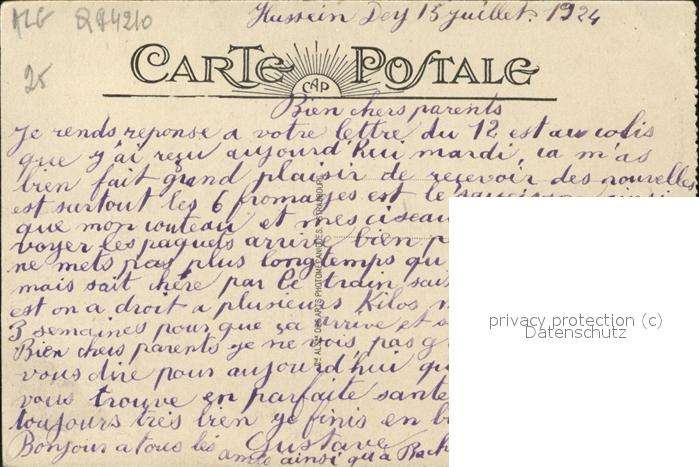 ALG Q84210
Hussein Dey 15 juillet. 1924
25
CARTE POSTALE
CAP
Bien chers parents
Je rends reponse a votre lettre du 12 est au colis
que j'ai reçu aujourd'hui mardi, ca m'as
bien fait grand plaisir de recevoir des nouvelles
est surtout les 6 fromages est le saucisson ainsi
que mon couteau et mes ciseau
voyer les paquets arrive bien p
ne mets pas plus longtemps qu
mais sait chère par le train, sais
est on a droit a plusieurs Kilos
3 semaines pour que ça arrive et s
Bien chers parents je ne vois pas g
vous dire pour aujourd'hui qu
vous trouve en parfaite sante
toujours très bien je finis en b
Bonjour a tous les Gustave
amis ainsi qu'a Rach
Cie ALSne DES ARTS PHOTOMÉCANIQUES, STRASBOURG
privacy protection (c)
Datenschutz